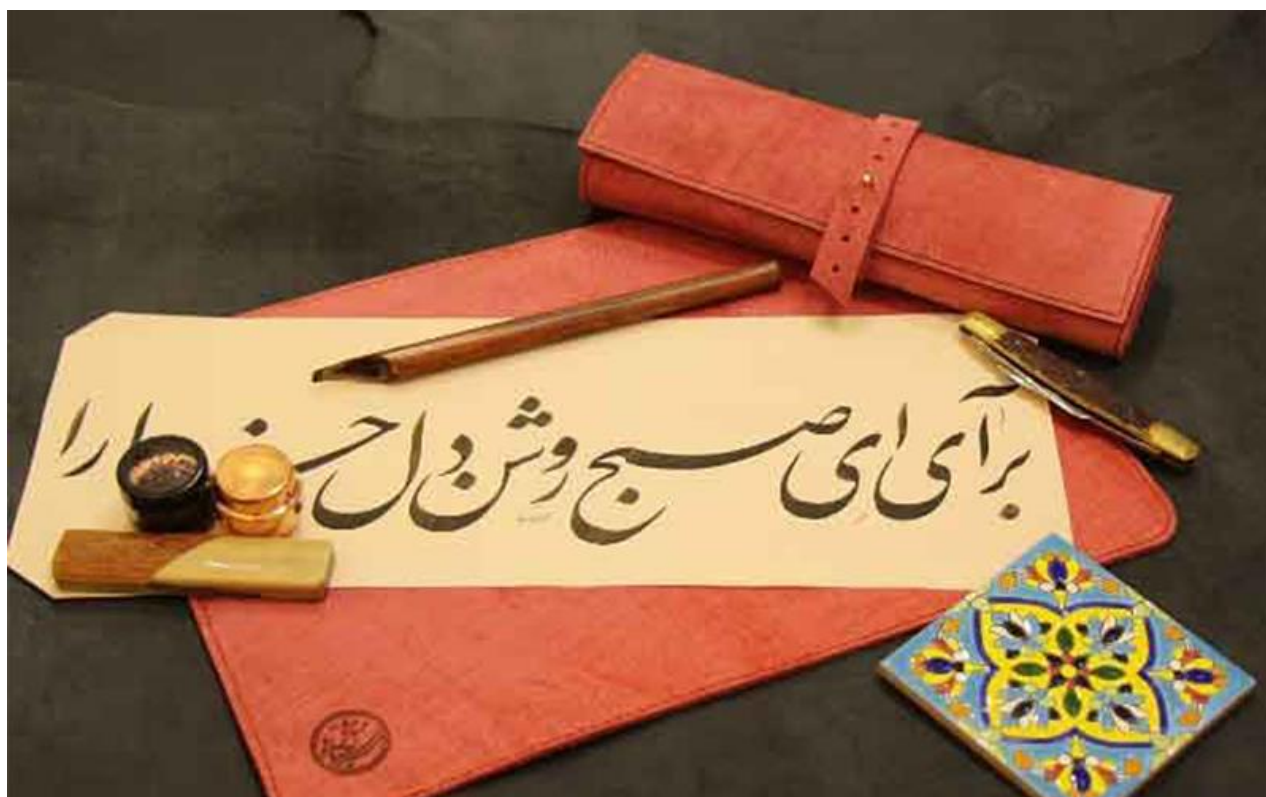 برآی ای صبح روشن دل خدا را